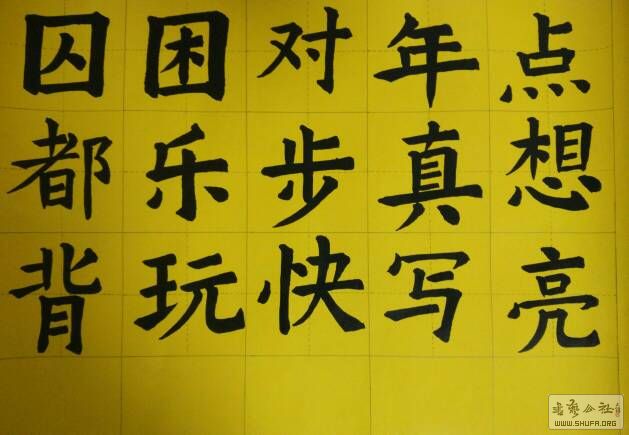 囚困对年点
都乐步真想
背玩快写亮
书艺公社
WWW.SHUFA.ORG